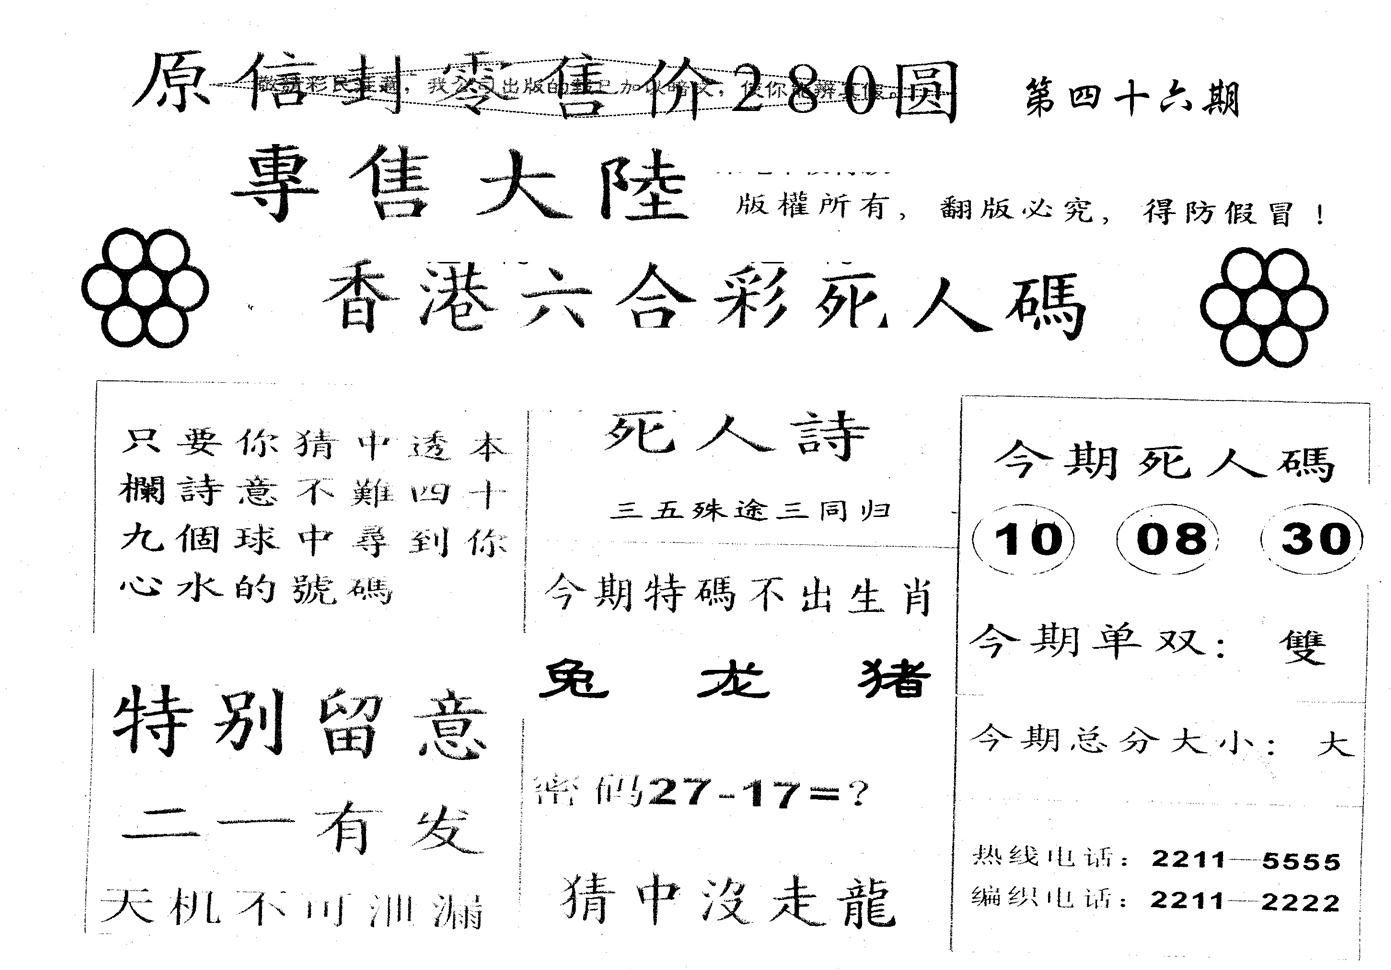 原信封零售价280圆
敬請彩民注意，我公司出版的報已加以暗文，使你能辨真假。
第四十六期
專售大陸
版權所有，翻版必究，得防假冒！
香港六合彩死人碼
只要你猜中透本
欄詩意不難四十
九個球中尋到你
心水的號碼
特别留意
二一有发
天机不可泄漏
死人詩
三五殊途三同归
今期特碼不出生肖
兔 龙 猪
密码27-17=？
猜中沒走龍
今期死人碼
10 08 30
今期单双：雙
今期总分大小：大
热线电话：2211—5555
编织电话：2211—2222